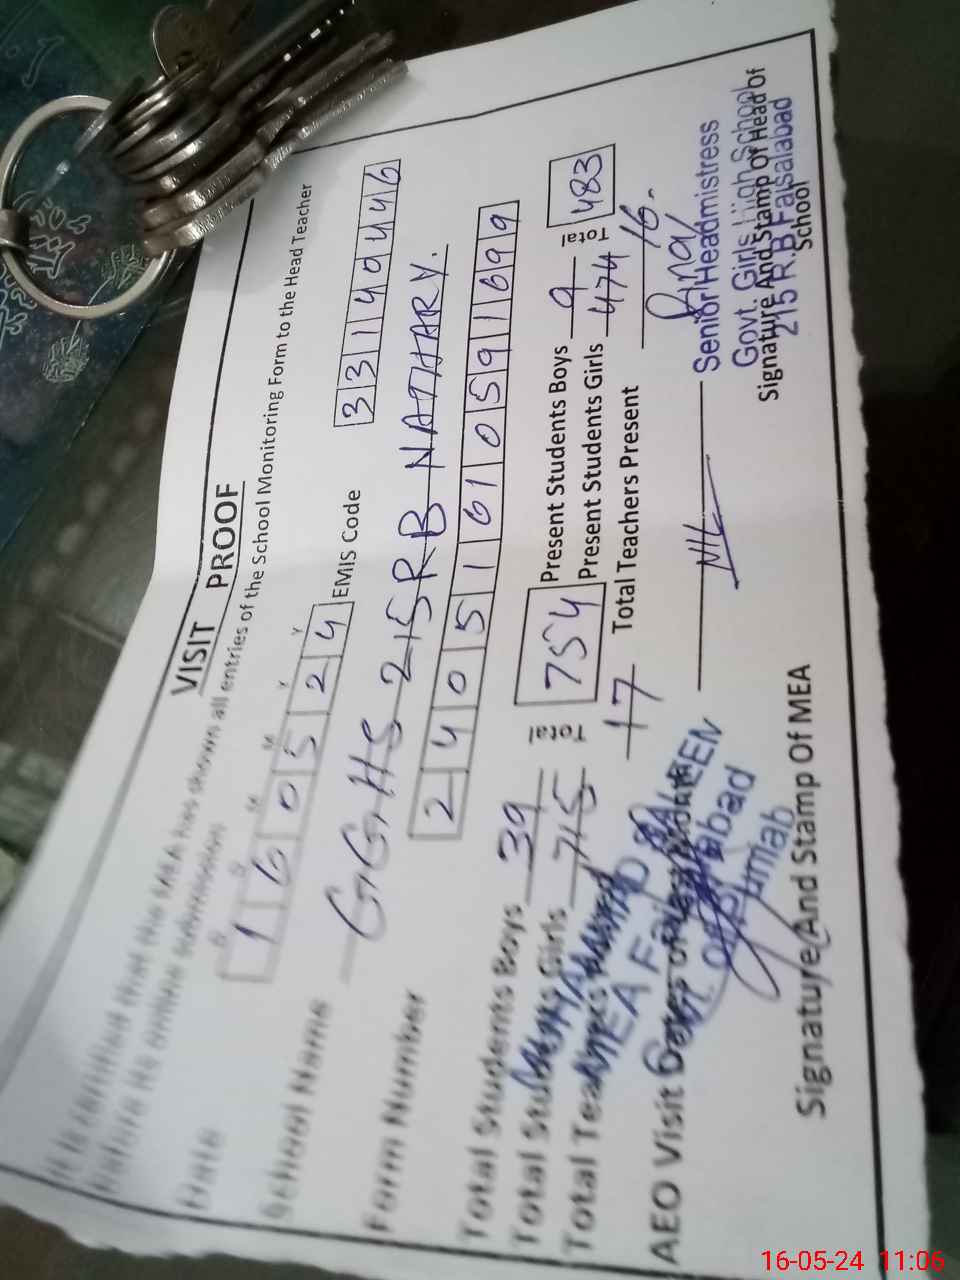 VISIT PROOF
It is certified that the MEA has shown all entries of the School Monitoring Form to the Head Teacher
before its online submission
Date D D M M Y Y 1 6 0 5 2 4 EMIS Code 3 3 1 4 0 4 4 6
School Name GGHS 215 RB NATHARY.
Form Number 2 4 0 5 1 6 1 0 5 9 1 6 9 9
Total Students Boys 39 Total 754 Present Students Boys 9 Total 483
Total Students Girls 715 Present Students Girls 474
Total Teachers 17 Total Teachers Present 16.
AEO Visit Dates NIL
MEA Faisalabad
Senior Headmistress
Govt. Girls High School
215 R.B Faisalabad
Signature And Stamp Of MEA
Signature And Stamp Of Head of
School
16-05-24 11:06